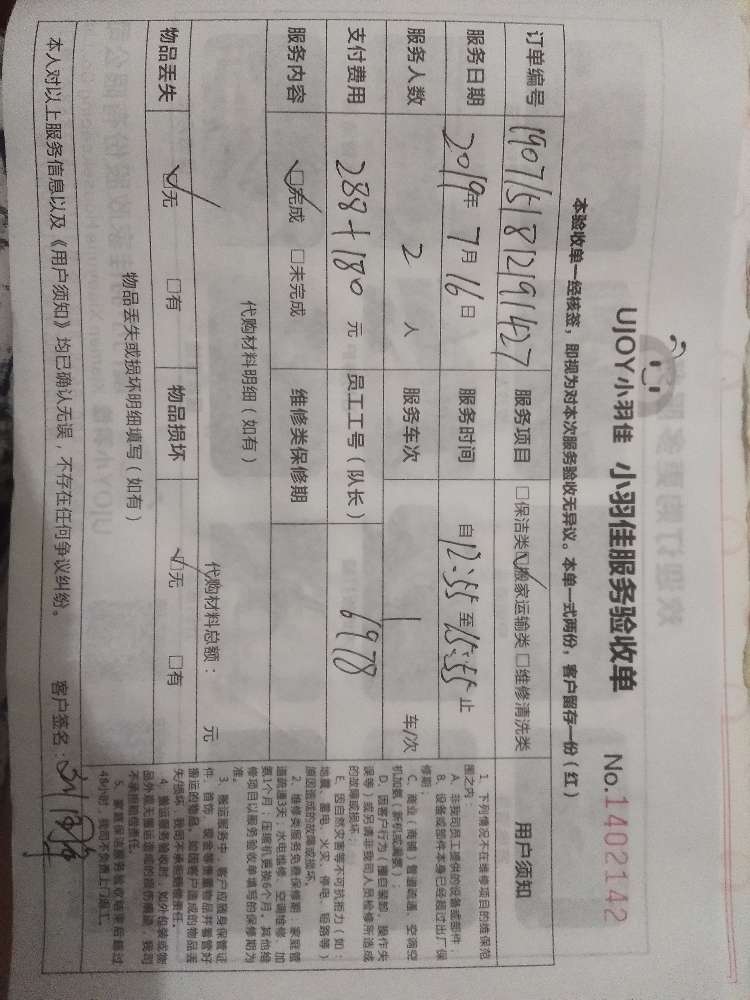 UJOY小羽佳 小羽佳服务验收单 No.1402142
本验收单一经核签，即视为对本次服务验收无异议。本单一式两份，客户留存一份（红）
订单编号 190715181219427 服务项目 □保洁类 ☑搬家运输类 □维修清洗类 用户须知
服务日期 2019年7月16日 服务时间 自12:55至15:55止
服务人数 2 人 服务车次 1 车/次
支付费用 288+180 元 员工工号（队长） 6978
服务内容 ☑完成 □未完成 维修类保修期
代购材料明细（如有）
代购材料总额： 元
物品丢失 ☑无 □有 物品损坏 ☑无 □有
物品丢失或损坏明细填写（如有）
1、下列情况不在维修项目的维保范
围之内：
A、非我司员工提供的设备或部件；
B、设备或部件本身已经超过出厂保
修期；
C、商业（商铺）管道疏通、空调空
机加氨（新机或漏氨）；
D、因客户行为（擅自装卸、操作失
误等）或另请非我司人员检修所造成
的故障或损坏；
E、因自然灾害等不可抗拒力（如：
地震、雷电、火灾、停电、短路等）
原因造成的故障或损坏。
2、维修类服务免费保修期：家庭管
道疏通3天；水电维修、空调维修、加
氨1个月；压缩机更换6个月。其他维
修项目以服务验收单填写的保修期为
准。
3、搬运服务中，客户应随身保管证
件、首饰、现金等贵重物品并看管好
搬运的物品。如因客户造成的物品丢
失/损坏，我司不承担赔偿责任。
4、搬运服务验收时，如外包装或物
品外观无搬运造成的损伤痕迹，我司
不承担赔偿责任。
5、家庭保洁服务验收结束后超过
48小时，我司不负责上门返工。
本人对以上服务信息以及《用户须知》均已确认无误，不存在任何争议纠纷。 客户签名：